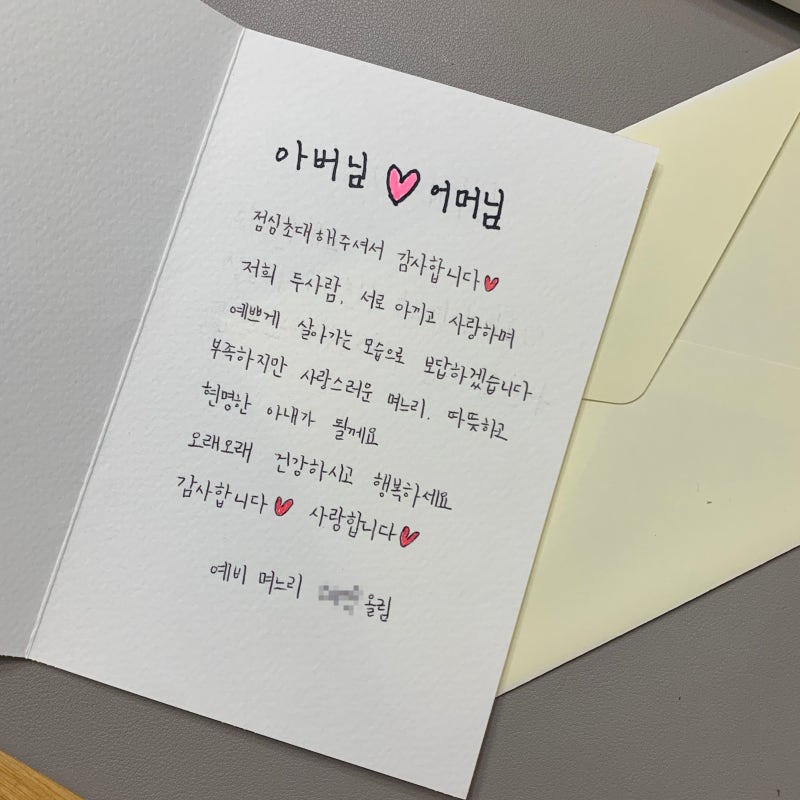 아버님 ♥ 어머님
점심초대해주셔서 감사합니다♥
저희 두사람, 서로 아끼고 사랑하며
예쁘게 살아가는 모습으로 보답하겠습니다
부족하지만 사랑스러운 며느리, 따뜻하고
현명한 아내가 될께요
오래오래 건강하시고 행복하세요
감사합니다♥ 사랑합니다♥
예비 며느리 올림